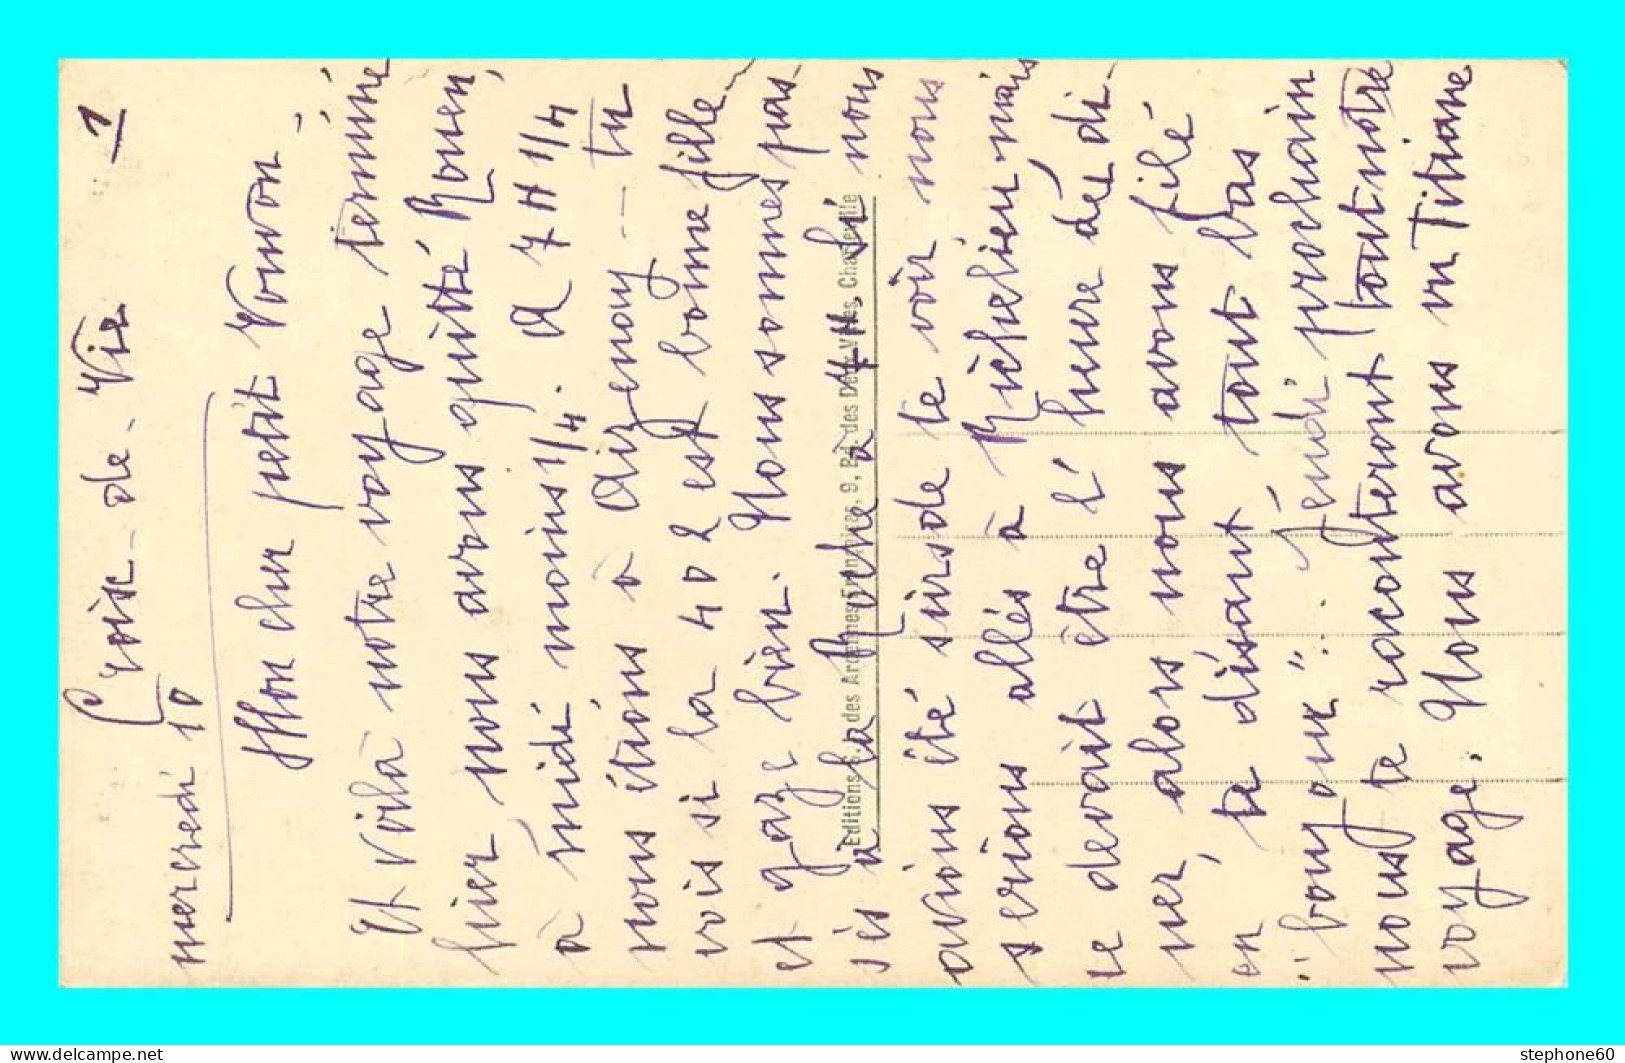 Croix-de-Vie 1
mercredi 10
Mon cher petit Vonvon
Et voilà notre voyage terminé
hier nous avons quitté Rouen,
à midi moins 1/4. A 7 H 1/4
nous étions à Aizenay — tu
vois si la 402 est bonne fille
et gaze bien. Nous sommes pas-
sés à la Roche à 7 H. Si nous
avions été sûrs de te voir nous
serions allés à Richelieu, mais
ce devait être l'heure du dî-
ner, alors nous avons filé
en te disant tout bas
"bonjour". Jeudi prochain
nous te raconterons tout notre
voyage. Nous avons vu Titiane
Editions S. des Ardennes Françaises, 9, Bd. des Deux Villes, Charleville
stephone60